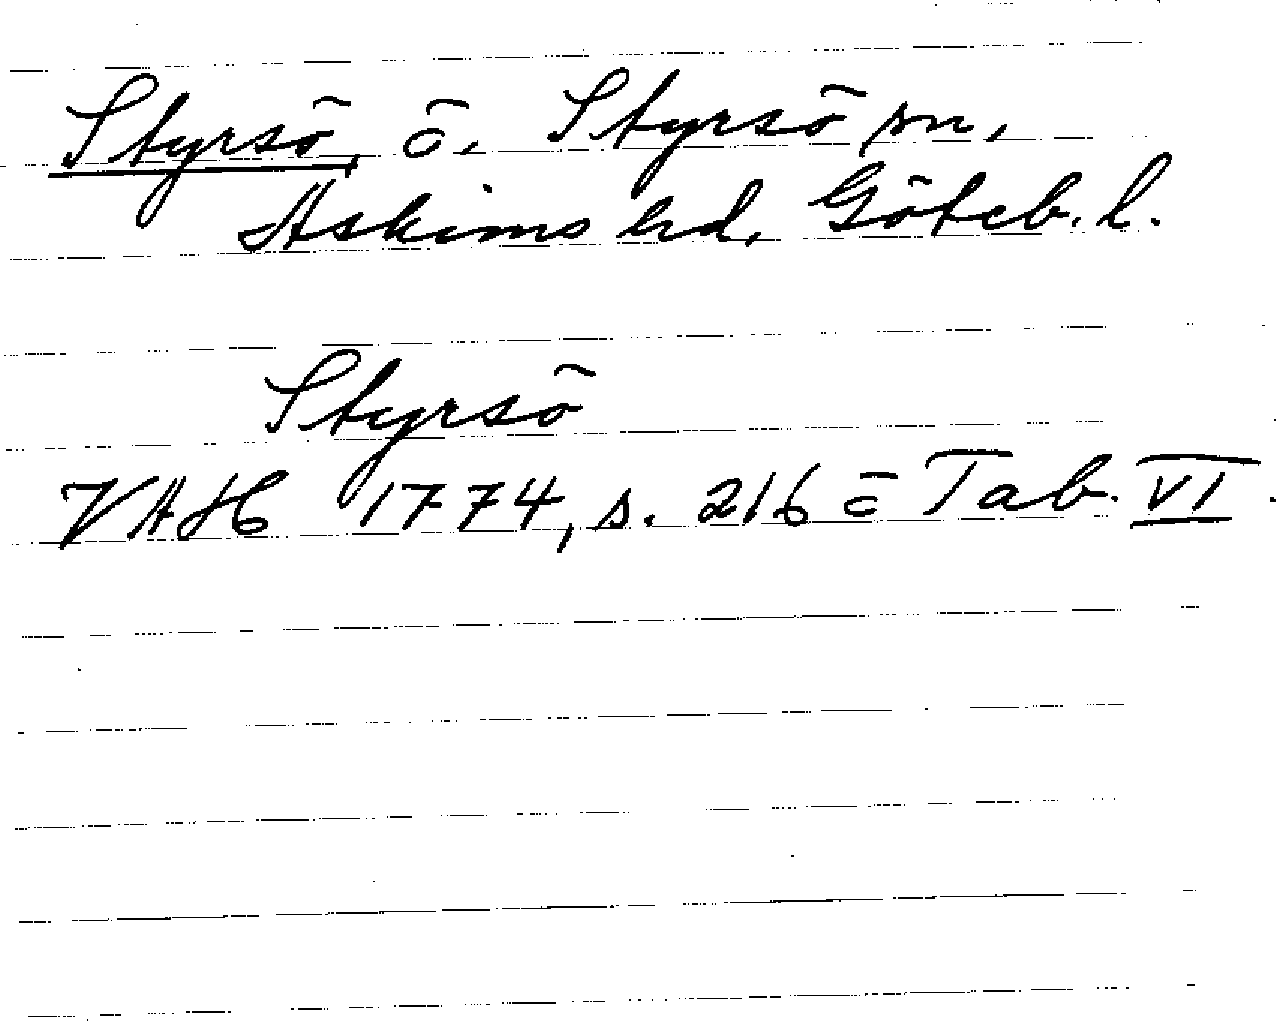 Styrsö, ö. Styrsö sn,
Askims hd, Göteb. l.
Styrsö
VAH 1774, s. 216 c̄ Tab. VI.